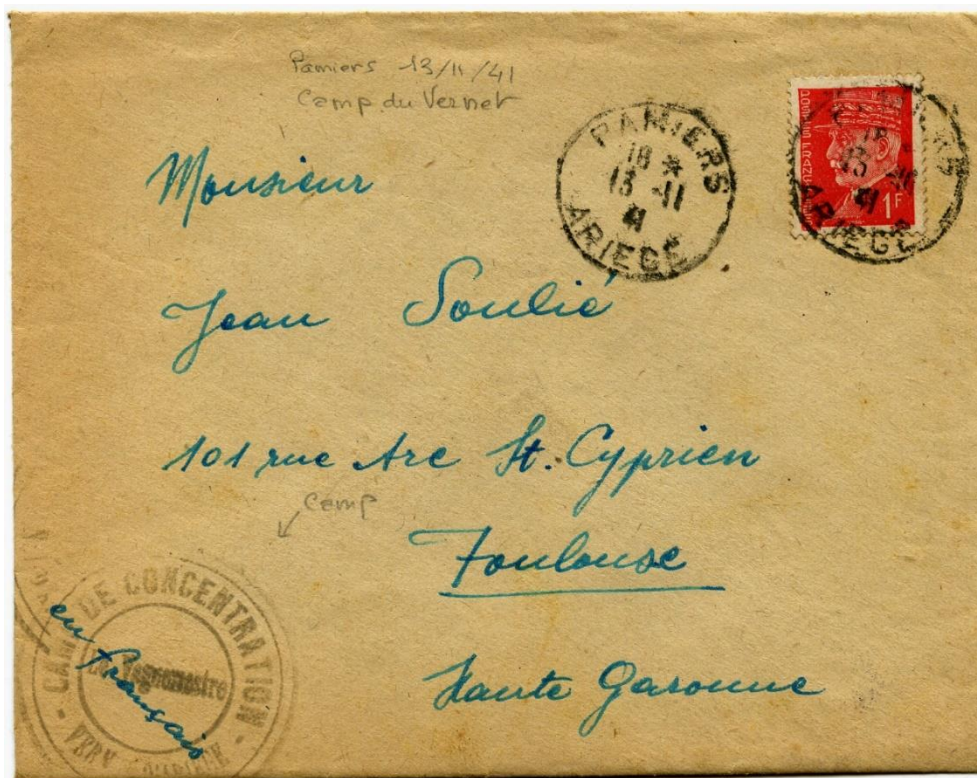 Pamiers 13/11/41
Camp du Vernet
PAMIERS
18 *
13 -11
41
ARIEGE
POSTES FRANCE
1F
13 -11
41
ARIEGE
Monsieur
Jean Soulié
101 rue Arc St. Cyprien
Camp
Toulouse
Haute Garonne
CAMP DE CONCENTRATION
Vaguemestre
en français